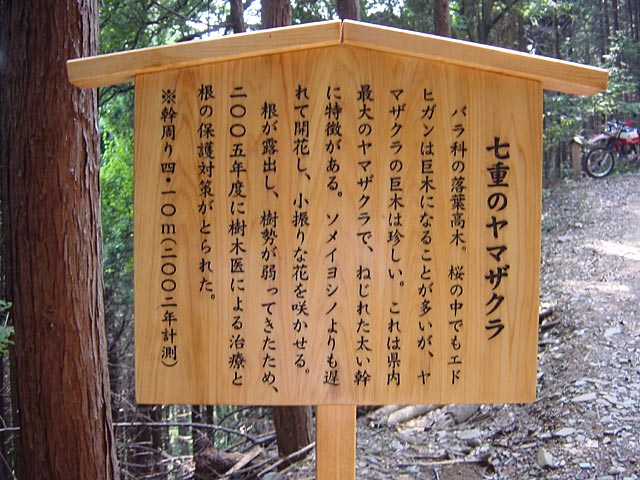 七重のヤマザクラ
バラ科の落葉高木。桜の中でもエド
ヒガンは巨木になることが多いが、ヤ
マザクラの巨木は珍しい。これは県内
最大のヤマザクラで、ねじれた太い幹
に特徴がある。ソメイヨシノよりも遅
れて開花し、小振りな花を咲かせる。
根が露出し、樹勢が弱ってきたため、
二〇〇五年度に樹木医による治療と
根の保護対策がとられた。
※幹周り四・一〇m(二〇〇二年計測)